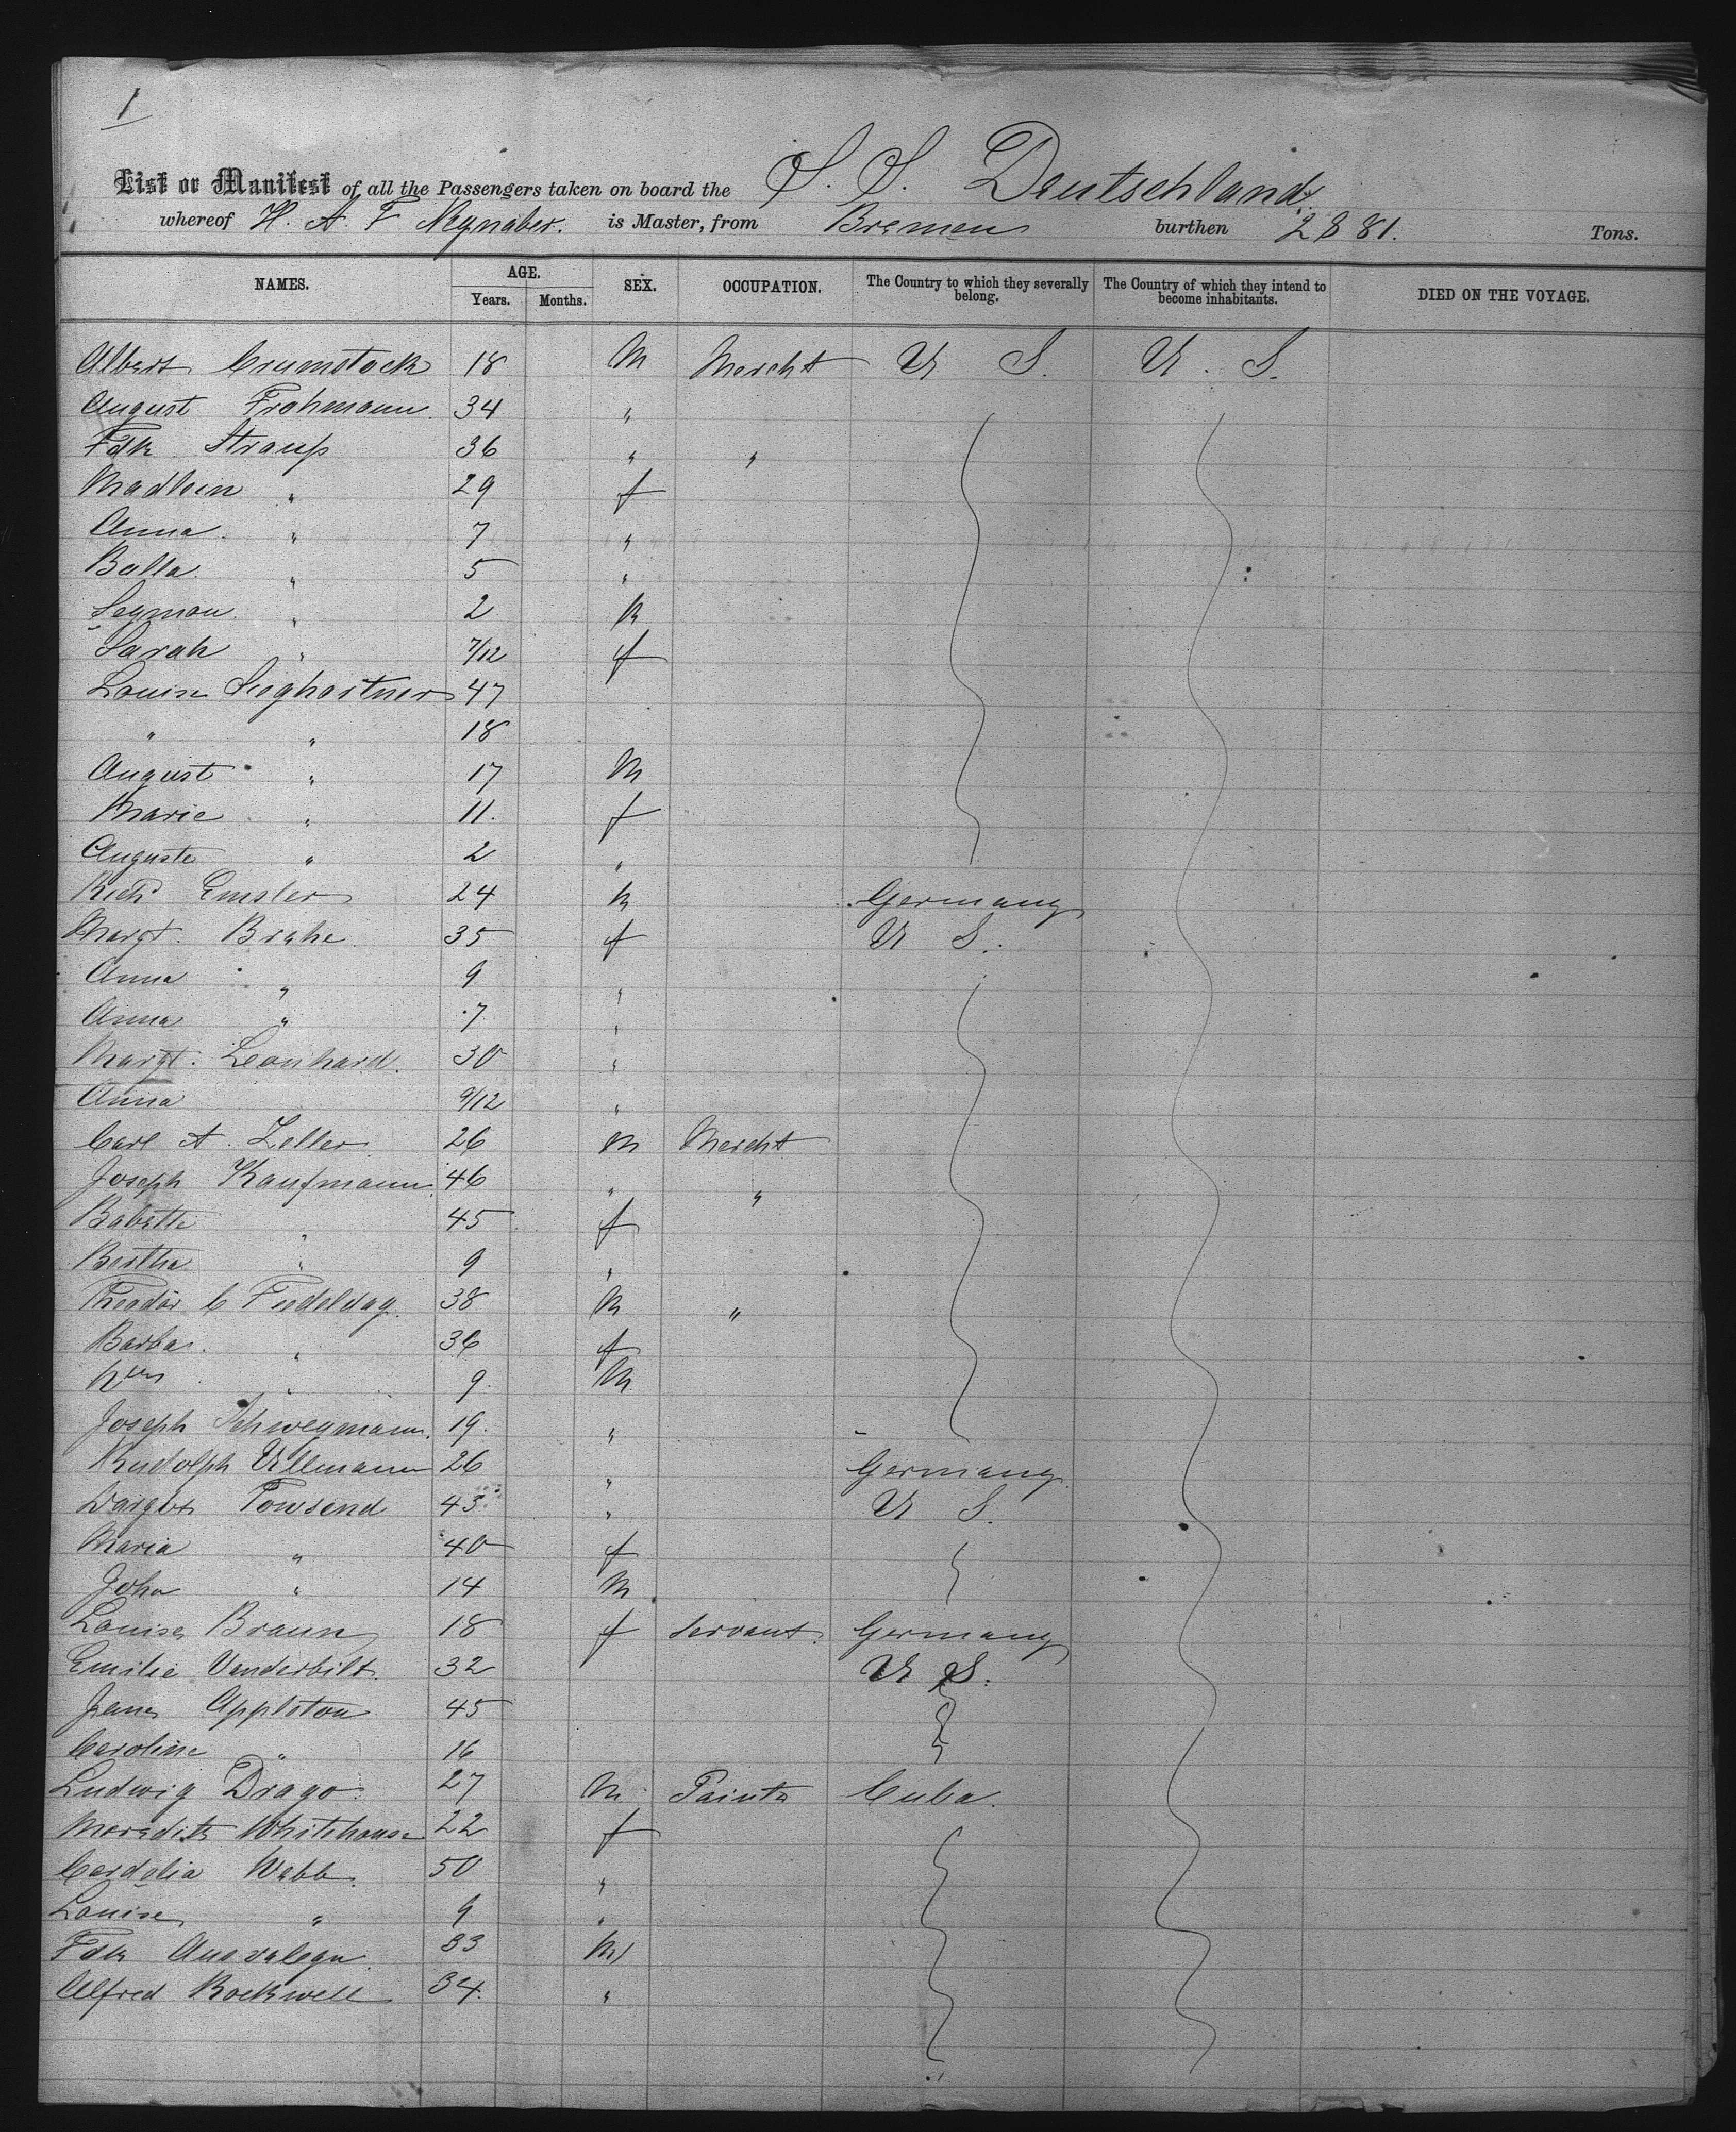 1
List or Manifest of all the Passengers taken on board the S. S. Deutschland
whereof H. A. F Neynaber. is Master, from Bremen burthen 2881. Tons.
NAMES. AGE. Years. Months. SEX. OCCUPATION. The Country to which they severally belong. The Country of which they intend to become inhabitants. DIED ON THE VOYAGE.
Albert Crumstock 18 M Mercht U S. U. S.
August Frohmann. 34 "
Fdk Strauss 36 " "
Madlein " 29 f
Anna. " 7 "
Bella. " 5 "
Seymon. " 2 M
Sarah " 7/12 f
Louise 47
" " 18
August " 17 M
Marie " 11. f
Auguste " 2 "
Richd Emsler 24 M Germany
Margt. Brahe. 35 f U S.
Anna " 9 "
Anna " 7 "
Margt. Leonhard. 30 "
Anna 9/12 "
Carl A. Zeller. 26 M Mercht
Joseph Kaufmann. 46 " "
Babette " 45 f
Bertha " 9 "
Theodor C 38 M "
Barba. " 36 f
Wm. " 9. M
Joseph Schwegmann. 19. "
Rudolph Ullmann 26 " Germany.
Towsend 43 " U S.
Maria " 40 f
John " 14 M
Louise Braun 18 f Servant. Germany
Emilie Vanderbilt. 32 U S.
Jane Appleton 45
Caroline " 16
Ludwig Drago. 27 M. Painter Cuba.
Meredith Whitehouse 22 f
Cordelia Webb. 50 "
Louise " 9 "
Fdk 33 M
Alfred Rockwell 34. "